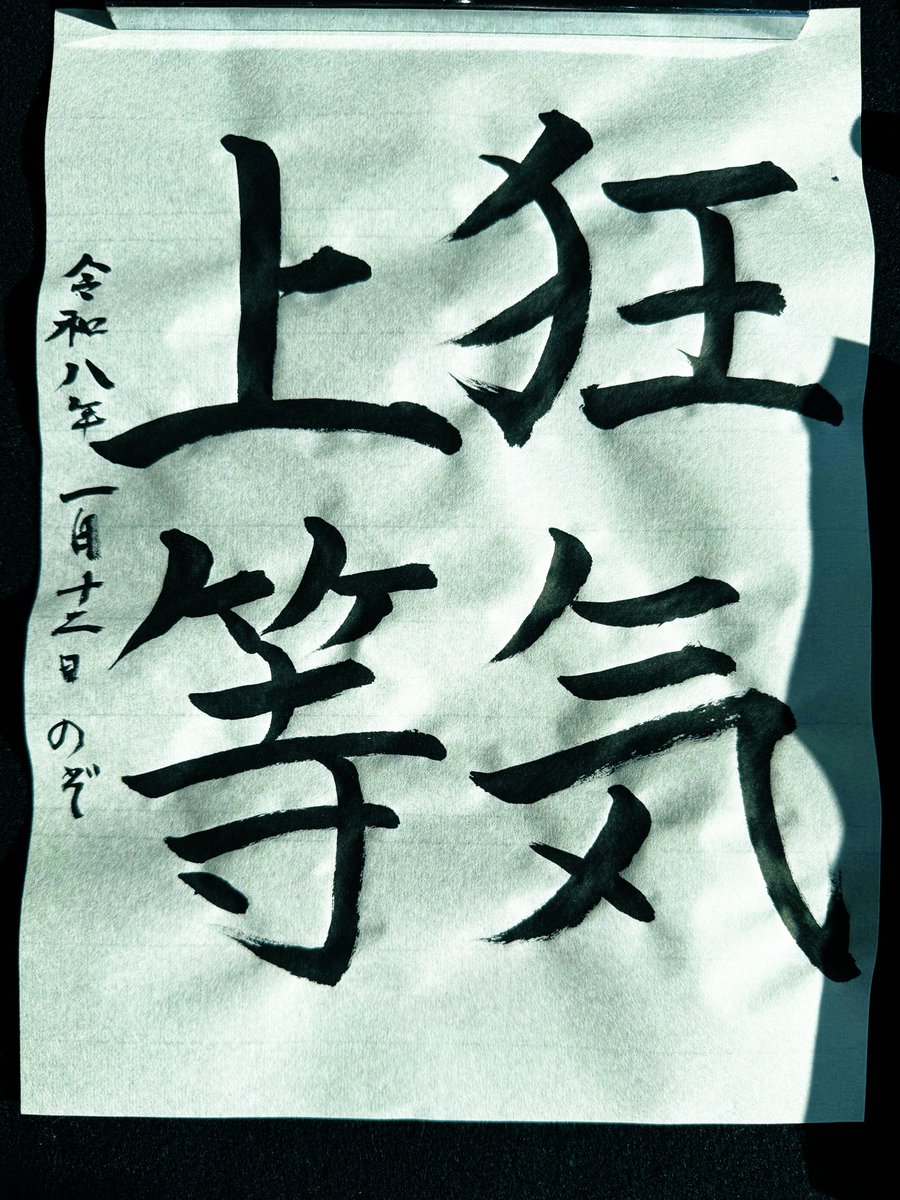 狂気
上等
令和八年 一月十二日 のぞ